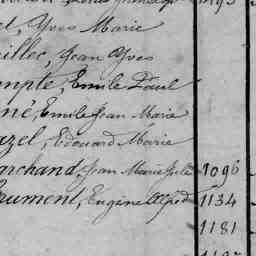 et, Yves Marie
illec, Jean Yves
ompte, Emile Paul
né, Emile Jean Marie
azel, Edouard Marie
anchand, Jean Marie Jules 1096
rument, Eugène Alfred 1134
1181